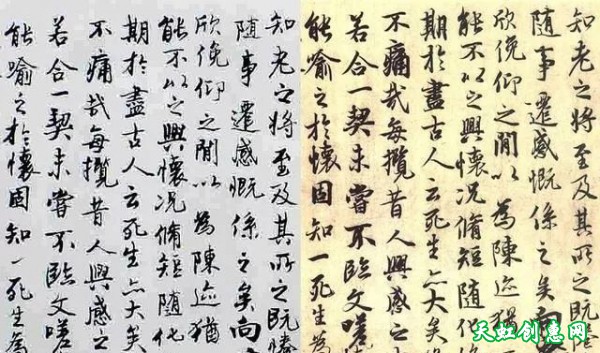 知老之将至及其所之既惓
随事遷感慨係之矣向
欣俛仰之閒以為陳迹猶
能不以之興懷況脩短随化
期於盡古人云死生亦大矣
不痛哉每攬昔人興感之
若合一契未嘗不臨文嗟
能喻之於懷固知一死生為
知老之将至及其所之既惓
随事遷感慨係之矣向
欣俛仰之閒以為陳迹猶
能不以之興懷況脩短随化
期於盡古人云死生亦大矣
不痛哉每攬昔人興感之
若合一契未嘗不臨文嗟
能喻之於懷固知一死生為
天虹创意网